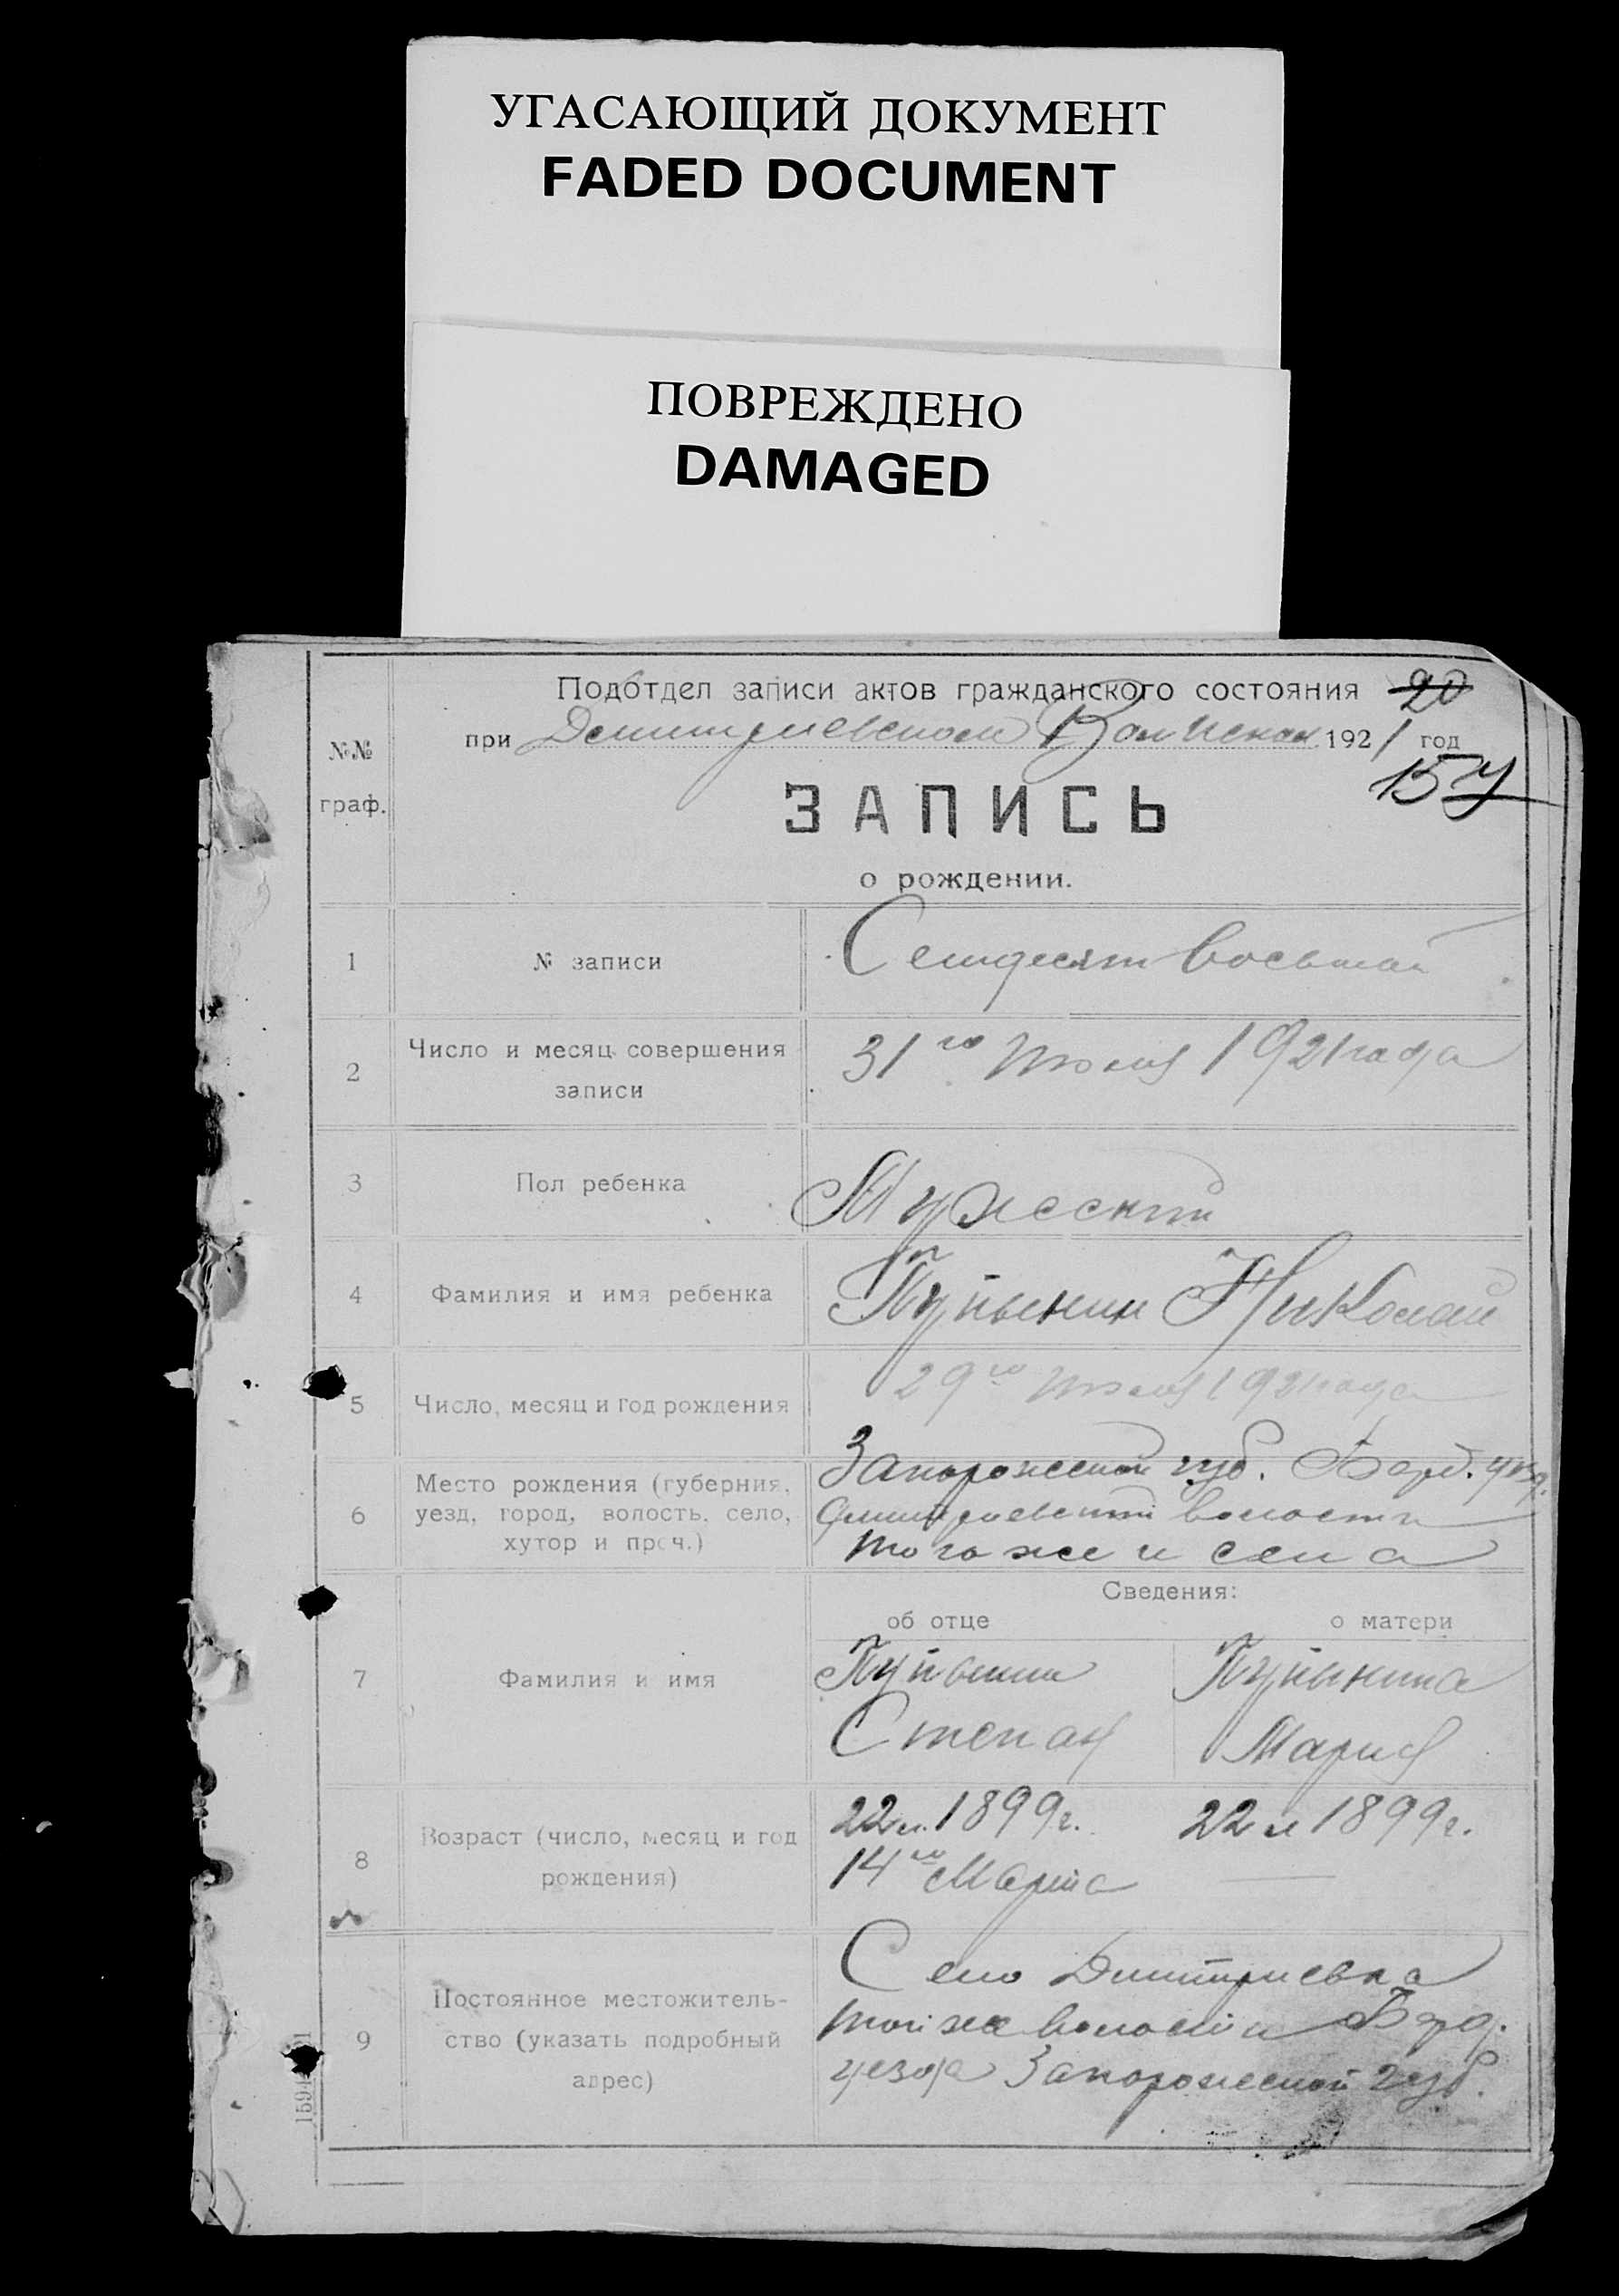 УГАСАЮЩИЙ ДОКУМЕНТ
FADED DOCUMENT
ПОВРЕЖДЕНО
DAMAGED
Подотдел записи актов гражданского состояния 20
при Демитриевском Волиспол 1921 год
157
№№
граф.
ЗАПИСЬ
о рождении.
1 № записи Семидесят восьмая
2 Число и месяц совершения 31го Июля 1921 года
записи
3 Пол ребенка Мужеский
4 Фамилия и имя ребенка Пупынин Николай
5 Число, месяц и год рождения 29го Июля 1921 года
6 Место рождения (губерния, Запорожской губ. Берд. уез.
уезд, город, волость, село, Дмитриевской волости
хутор и проч.) того же и села
Сведения:
об отце о матери
7 Фамилия и имя Пупынин Пупынина
Степан Мария
8 Возраст (число, месяц и год 22 л. 1899 г. 22 л 1899 г.
рождения) 14го Марта —
9 Постоянное местожитель- Село Димитриевка
ство (указать подробный той же волости Берд.
адрес) уезда Запорожской губ.